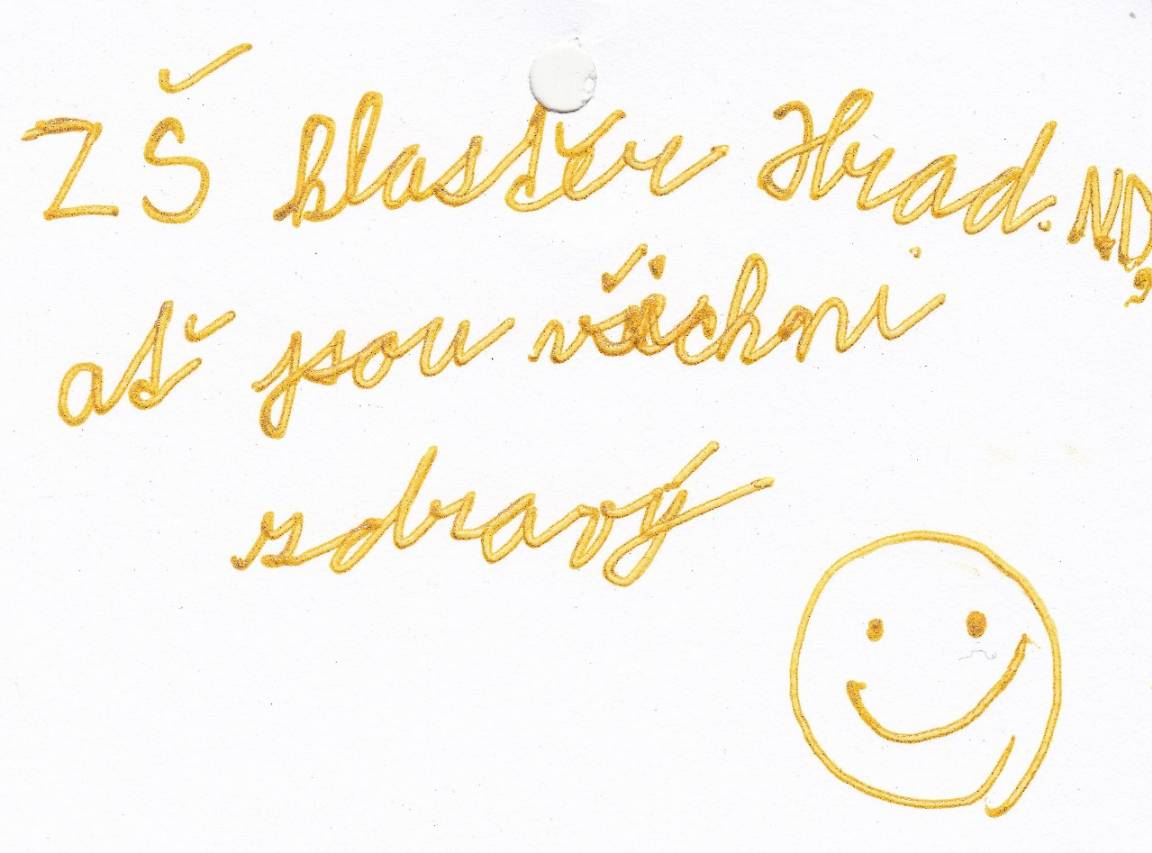 ZŠ klaster Hrad. ND,
ať jsou všichni
zdravý